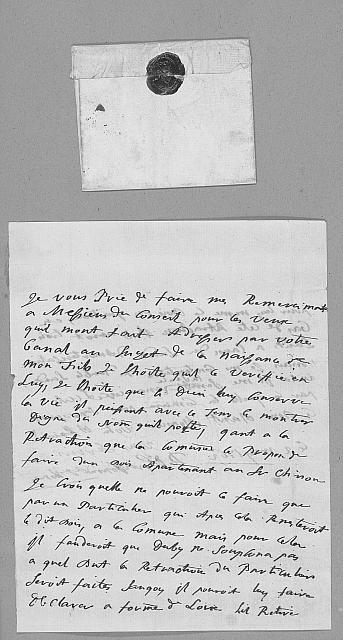 Je vous Prie de faire mes Remerciment
a Messieurs du Conseil pour les Veux
quil mont fait Adresser par votre
Canal au Sujet de la naissance de
mon fils Je Shoite quil se Verifie en
Luy, Je Shoite que le Dieu luy Conserve
la Vie il puissent avec le Tems se montrer
Digne du Nom quil porte, quant a la
Retraction que la Comune se Propose de
faire dun Bois Apartenant au Sr
Je Crois quelle ne pouroit le faire que
par un Particulier qui Apres Cela Remetteroit
le dit Bois, a la Comune mais pour Cela
Jl faudroit que ne Soupsona pas
a quel But la Retraction du Particulier
Seroit faites il pouroit luy faire
Declarer a forme de Loix Sil Retire